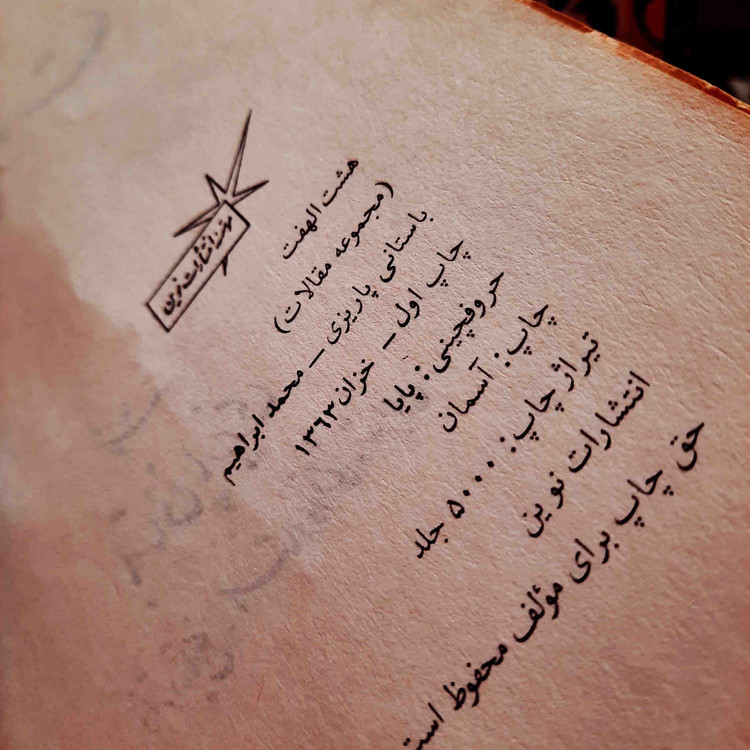 موسسه انتشارات نوین
هشت الهفت
(مجموعه مقالات)
باستانی پاریزی – محمد ابراهیم
چاپ اول – خزان ۱۳۶۳
حروفچینی: پایا
چاپ: آسمان
تیراژ چاپ: ۵۰۰۰ جلد
انتشارات نوین
حق چاپ برای مؤلف محفوظ است